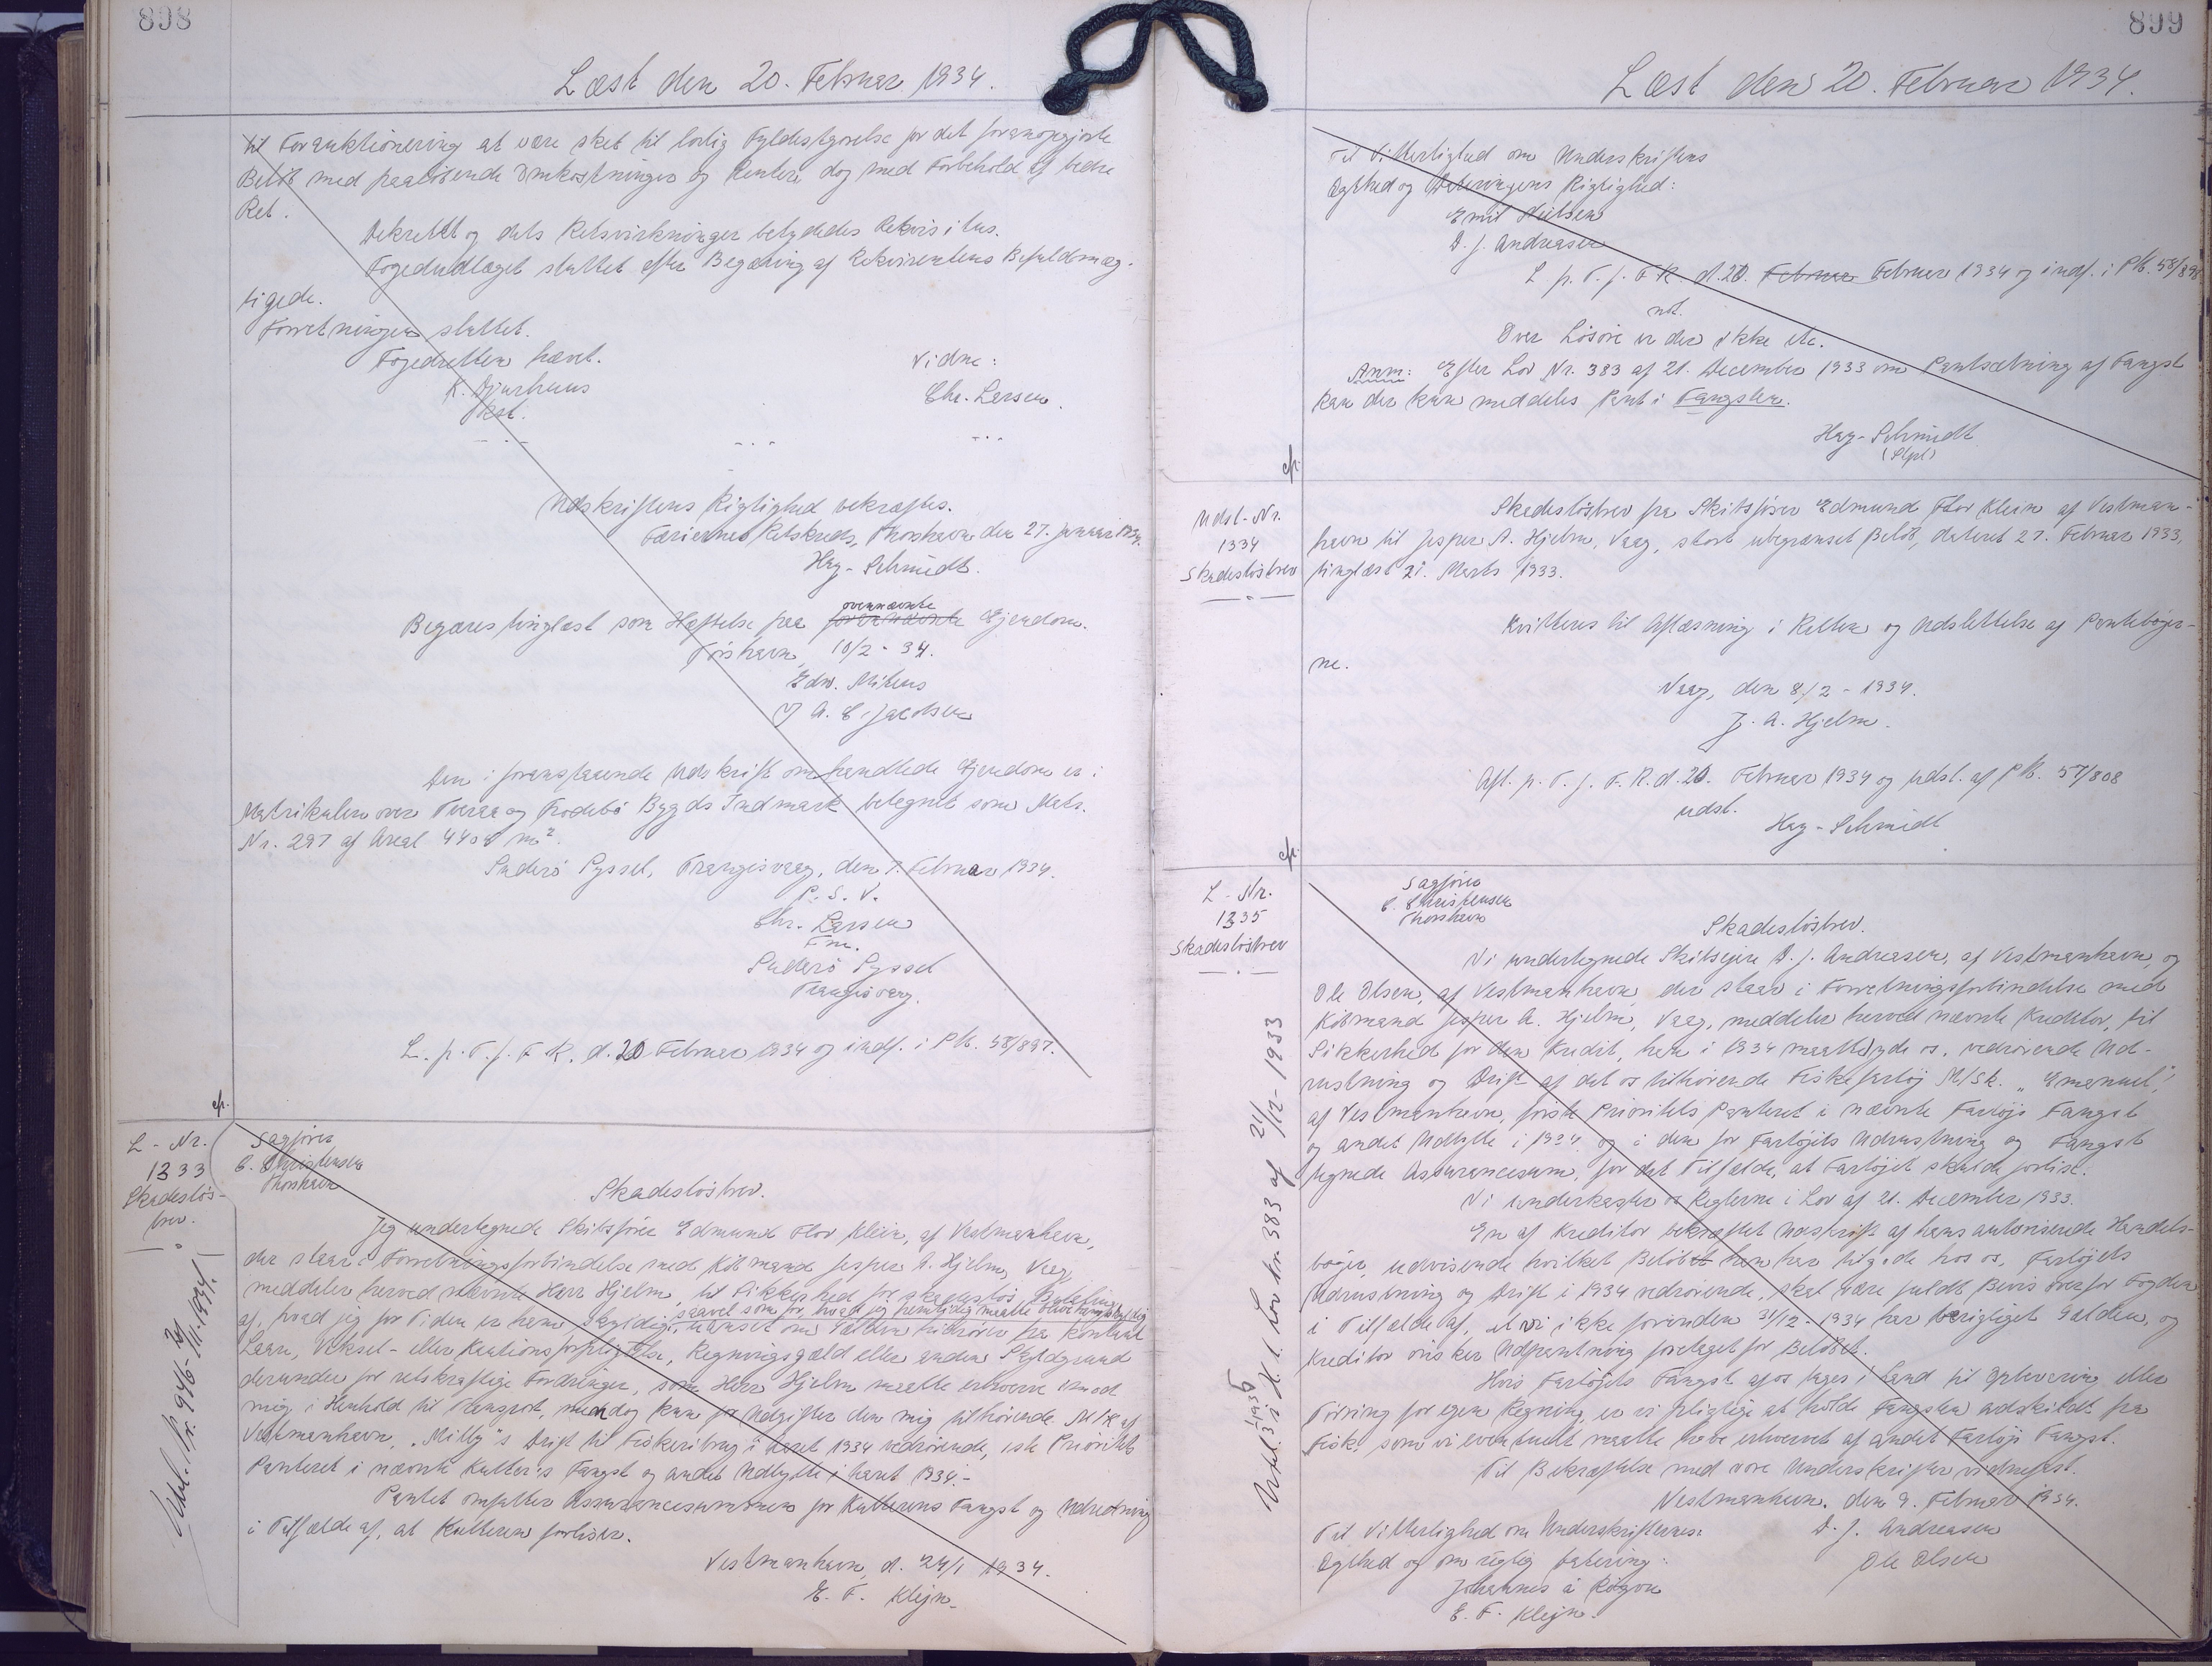 898
Læst den 20. Februar 1934.
til Forauktionering at være sket til lovlig Fyldestgørelse for det foranopgjorte
Beløb med paaløbende Omkostninger og Rentere dog med Forbehold af bedre
Ret.
Dekretet og dets Retsvirkninger betydedes Rekvisitus.
Fogedudlæget sluttet efter Begæring af Rekvirentens Befuldmæg-
tigede.
Forretningen sluttet.
Fogedretten hævet.
Vidne:
K. Djurhuus
Chr. Larsen.
kst.
Udskriftens Rigtighed bekræftes.
Færøernes Retskreds, Thorshavn den 27. Januar 1934.
Hag-Schmidt.
ovennævnte
Begæres tinglæst som Hæftelse paa Ejendom.
Tórshavn, 10/2 - 34.
Edw. Mitens
A. C. Jacobsen
Den i foranstaaende Udskrift omhandlede Ejendom er i
Matrikulen over Tveraa og Frodebø Bygds Indmark betegnet som Matr.
Nr. 297 af Areal 4408 m².
Suderø Syssel, Trangisvaag, den 7. Februar 1934.
P. S. V.
Chr. Larsen
Fm.
Suderø Syssel
Trangisvaag.
L. p. T. f. F. R. d. 20 Februar 1934 og indf. i P.B. 58/897.
cfr.
L - Nr.
1333
Skadesløs-
brev.
Sagfører
C. Christensen
Thorshavn
Skadesløsbrev.
Jeg undertegnede Skibsfører Edmund Flor Klein, af Vestmanhavn,
der staar i Forretningsforbindelse med Købmand Jesper A. Hjelm, Vaag,
meddeler herved nævnte Herr Hjelm, til Sikkerhed for skadesløs Betaling
saavel som for, hvad jeg fremtidig maatte blive ham skyldig
af, hvad jeg for Tiden er ham skyldig, uanset om Gælden hidrører fra kontant
Laan, Veksel- eller Kautionsforpligtelse, Regningsgæld eller anden Skyldgrund
derunder for retskraftige Fordringer, som Herr Hjelm maatte erhverve imod
mig i Henhold til Transport, men dog kun for Udgifter den mig tilhørende M/K af
Vestmanhavn, "Milly"s Drift til Fiskeribrug i Aaret 1934 vedrørende, 1ste Prioritets
Panteret i nævnte Kutter's Fangst og andet Udbytte i Aaret 1934.-
Pantet omfatter Assurancesummen for Kutterens Fangst og Udrustning
i Tilfælde af, at Kutteren forliser.
Vestmanhavn, d. 24/1 1934.
E. F. Klejn.
899
Læst den 20. Februar 1934.
Til Vitterlighed om Underskriftens
Ægthed og Dateringens Rigtighed:
Emil Nielsen
D. J. Andreasen
L p. T. f. F. R. d. 20. Februar Februar 1934 og indf. i P.B. 58/898
not.
Over Løsøre er der ikke etc.
Anm: Efter Lov Nr. 383 af 21. December 1933 om Pantsætning af Fangst
kan der kun meddeles Pant i Fangsten.
Hag-Schmidt
cfr.
Udsl-Nr.
1334
Skadesløsbrev
Skadesløsbrev fra Skibsfører Edmund Flor Klein af Vestman-
havn til Jesper A. Hjelm, Vaag, stort ubegrænset Beløb, dateret 27. Februar 1933,
tinglæst 21. Marts 1933.
Kvitteres til Aflæsning i Retten og Udslettelse af Pantebøger-
ne.
Vaag, den 8/2 - 1934.
J. A. Hjelm.
Afl. p. T. f. F. R. d. 20. Februar 1934 og udsl. af P.B. 57/808
udsl.
Hag-Schmidt
cfr.
L - Nr.
1335
Skadesløsbrev
Sagfører
C. Christensen
Thorshavn
Skadesløsbrev.
Vi undertegnede Skibsejere D. J. Andreasen, af Vestmanhavn, og
Ole Olsen, af Vestmanhavn, der staar i Forretningsforbindelse med
Købmand Jesper A. Hjelm, Vaag, meddeler herved nævnte Kreditor, til
Sikkerhed for den Kredit, han i 1934 maatte yde os, vedrørende Ud-
rustning og Drift af det os tilhørende Fiskefartøj M/Sk. "Emanuel",
af Vestmanhavn, første Prioritets Panteret i nævnte Fartøjs Fangst
og andet Udbytte i 1934 og i den for Fartøjets Udrustning og Fangst
tegnede Assurancesum, for det Tilfælde, at Fartøjet skulde forlise.
Vi underkaster os Reglerne i Lov af 21. December 1933.
En af Kreditor bekræftet Udskrift af hans autoriserede Handels-
bøger, udvisende hvilket Beløb han har tilgode hos os, Fartøjets
Udrustning og Drift i 1934 vedrørende, skal være fuldt Bevis overfor Fogden
i Tilfælde af, at vi ikke forinden 31/12 - 1934 har berigtiget Gælden, og
Kreditor ønsker Udpantning foretaget for Beløbet.
Hvis Fartøjets Fangst af os tages i Land til Opbevaring eller
Tørring for egen Regning, er vi pligtige at holde Fangsten adskildt fra
Fisk, som vi eventuelt maatte have erhvervet af andet Fartøjs Fangst.
Til Bekræftelse med vore Underskrifter vidnefast.
Vestmanhavn, den 9. Februar 1934.
Til Vitterlighed om Underskrifternes
D. J. Andreasen
Ægthed og om rigtig Datering:
Ole Olsen
Johannes á Rógvu
E. F. Klejn.